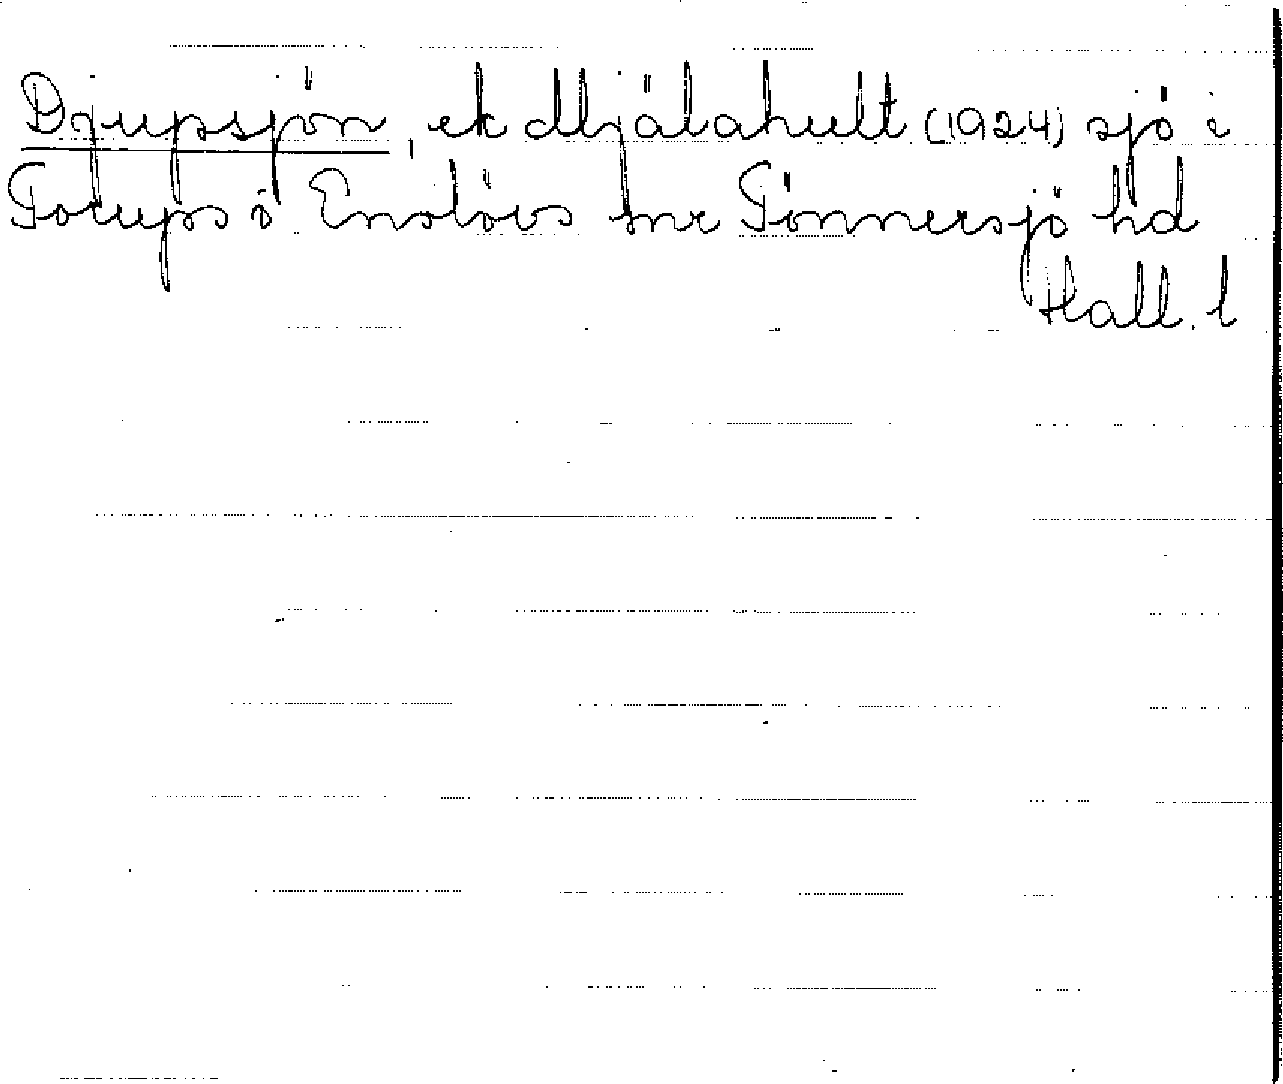 Djupsjön, ek Mjälahult (1924) sjö i
Torups o Enslövs snr Tönnersjö hd
Hall. l